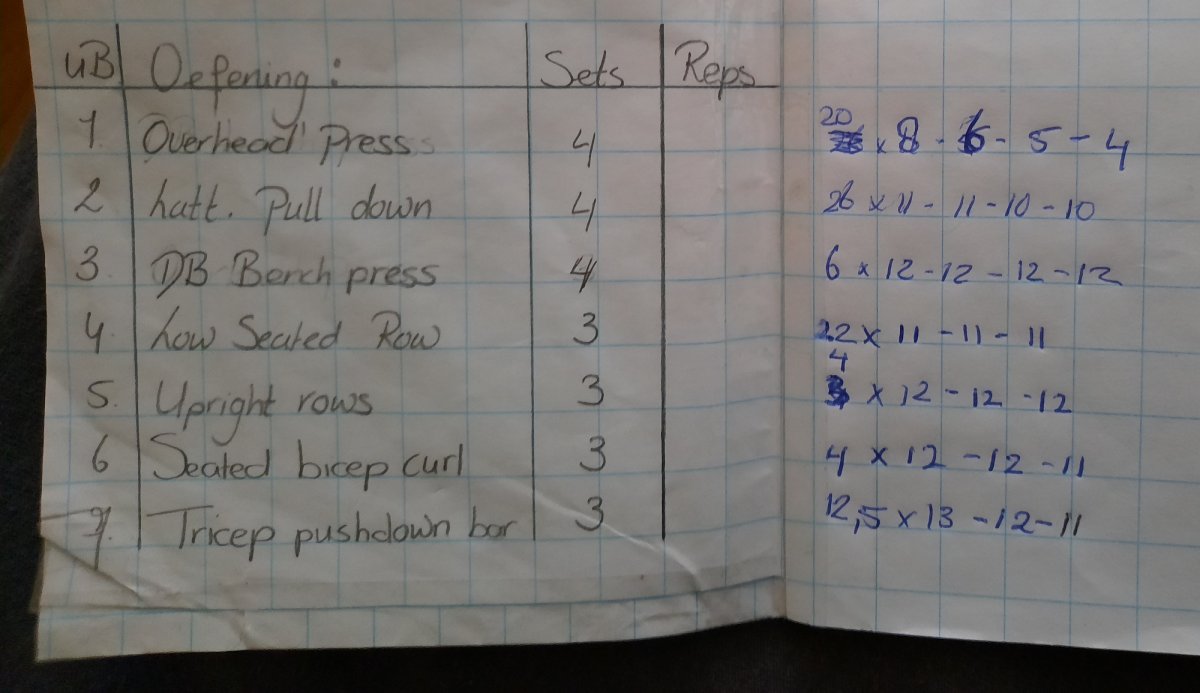 UB Oefening: Sets Reps
1 Overhead Press 4 20 x 8 - 6 - 5 - 4
2 Latt. Pull down 4 26 x 11 - 11 - 10 - 10
3. DB Bench press 4 6 x 12 - 12 - 12 - 12
4. Low Seated Row 3 22 x 11 - 11 - 11
5. Upright rows 3 4 x 12 - 12 - 12
6 Seated bicep curl 3 4 x 12 - 12 - 11
7. Tricep pushdown bar 3 12,5 x 13 - 12 - 11